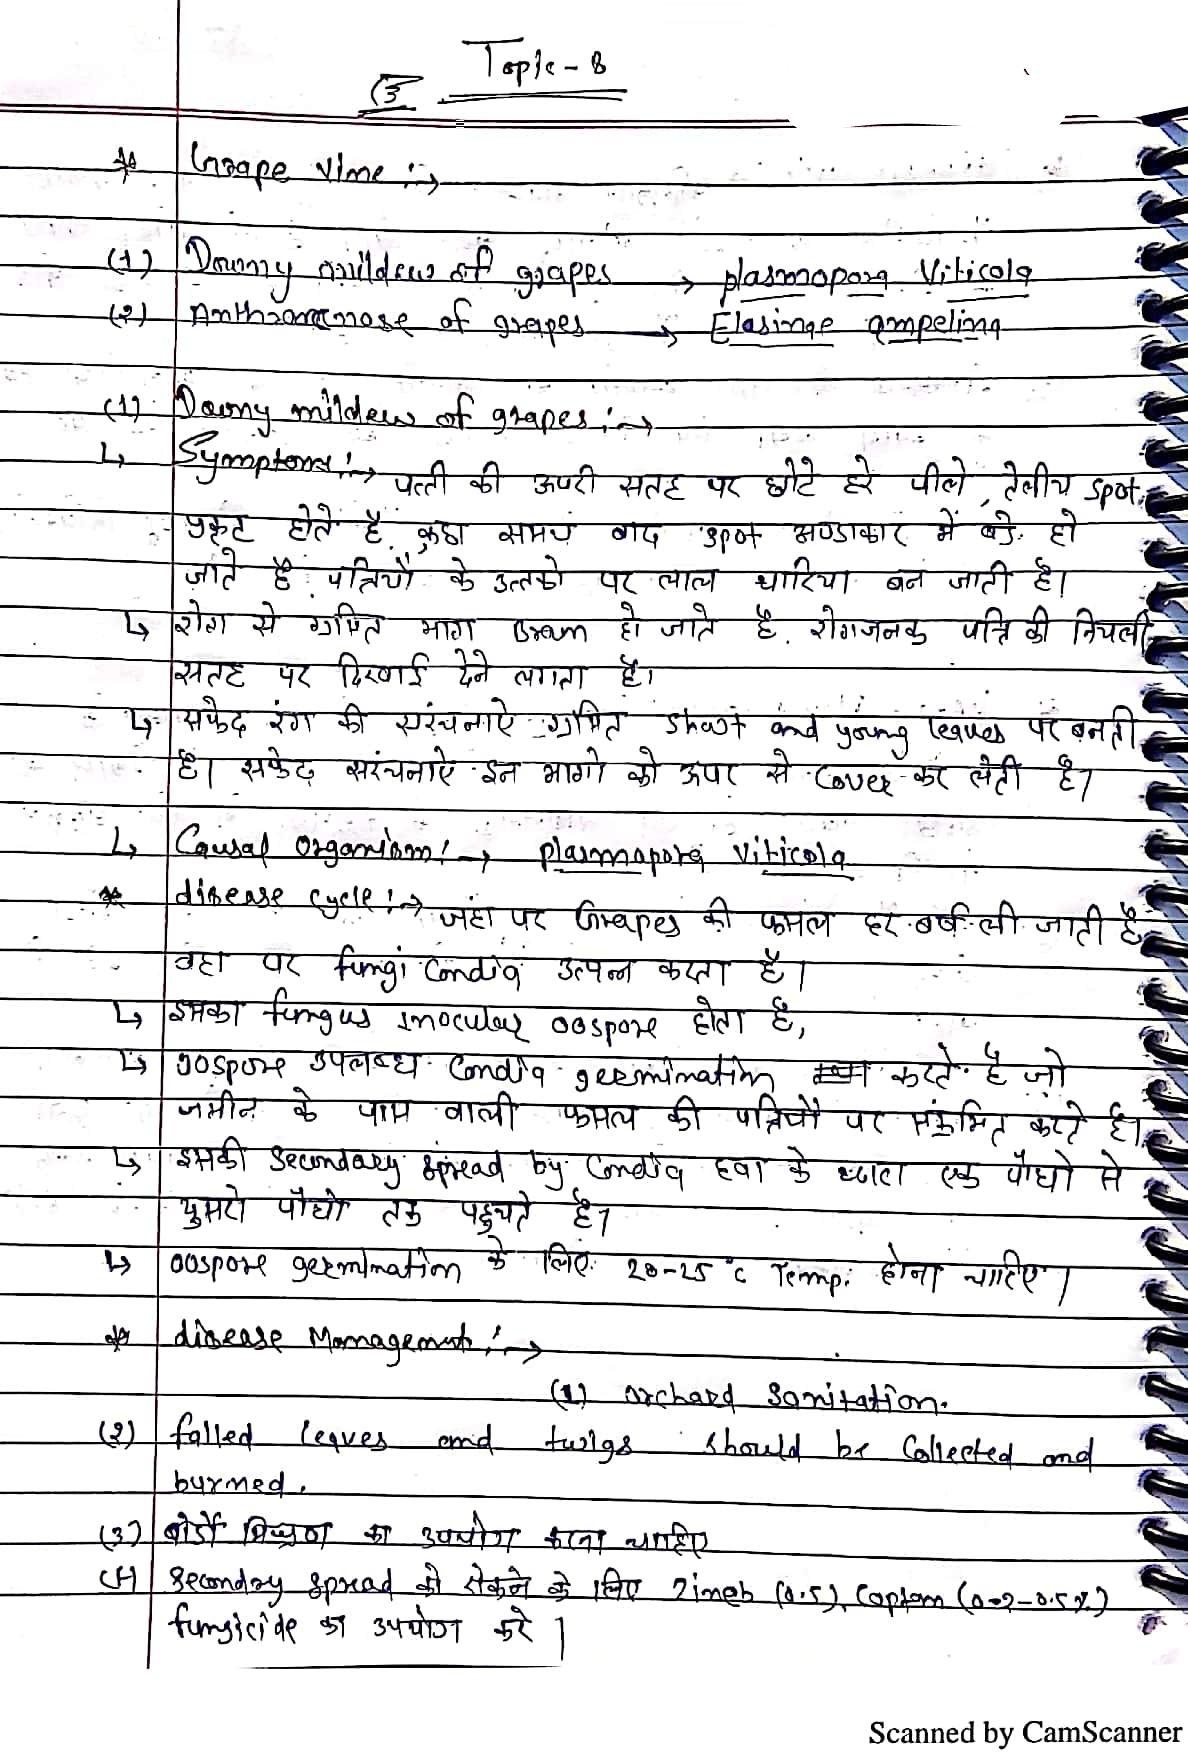 Topic - 8
(3)
* Grape Vime :→
(1) Downy mildew of grapes → plasmopora Viticola
(2) Anthracnose of grapes → Elasinge ampelina
(1) Downy mildew of grapes :→
↳ Symptoms :→ पत्ती की ऊपरी सतह पर छोटे हरे पीले, तेलीय spot
प्रकट होते है. कुछ समय बाद spot अण्डाकार में बडे हो
जाते है. पत्तियों के उत्तको पर लाल धारिया बन जाती है।
↳ रोग से ग्रसित भाग Brown हो जाते है. रोगजनक पत्ति की निचली
सतह पर दिखाई देने लगता है।
↳ सफेद रंग की सरंचनाऐ ग्रसित shoot and young leaves पर बनती
है। सफेद सरंचनाऐ इन भागो को ऊपर से cover कर लेती है।
↳ Causal organism :→ plasmapora viticola
* disease cycle :→ जहा पर Grapes की फसल हर बर्ष ली जाती है
वहा पर fungi Condia उत्पन्न करता है।
↳ इसका fungus inocular oospore होता है,
↳ oospore उपलब्ध Condia germination करते है जो
जमीन के पास वाली फसल की पत्तियों पर संक्रमित करते है।
↳ इसकी Secondary spread by Condia हवा के द्वारा एक पौधो से
दुसरो पौधो तक पहुचते है।
↳ oospore germination के लिए 20-25°c Temp. होना चाहिए।
* disease Management :→
(1) orchard Sanitation.
(2) falled leaves and twigs should be Collected and
burned.
(3) बोर्डो मिश्रण का उपयोग करना चाहिए
(4) Secondry spread को रोकने के लिए Zineb (0.5), Captan (0.2-0.5%)
fungicide का उपयोग करे।
Scanned by CamScanner